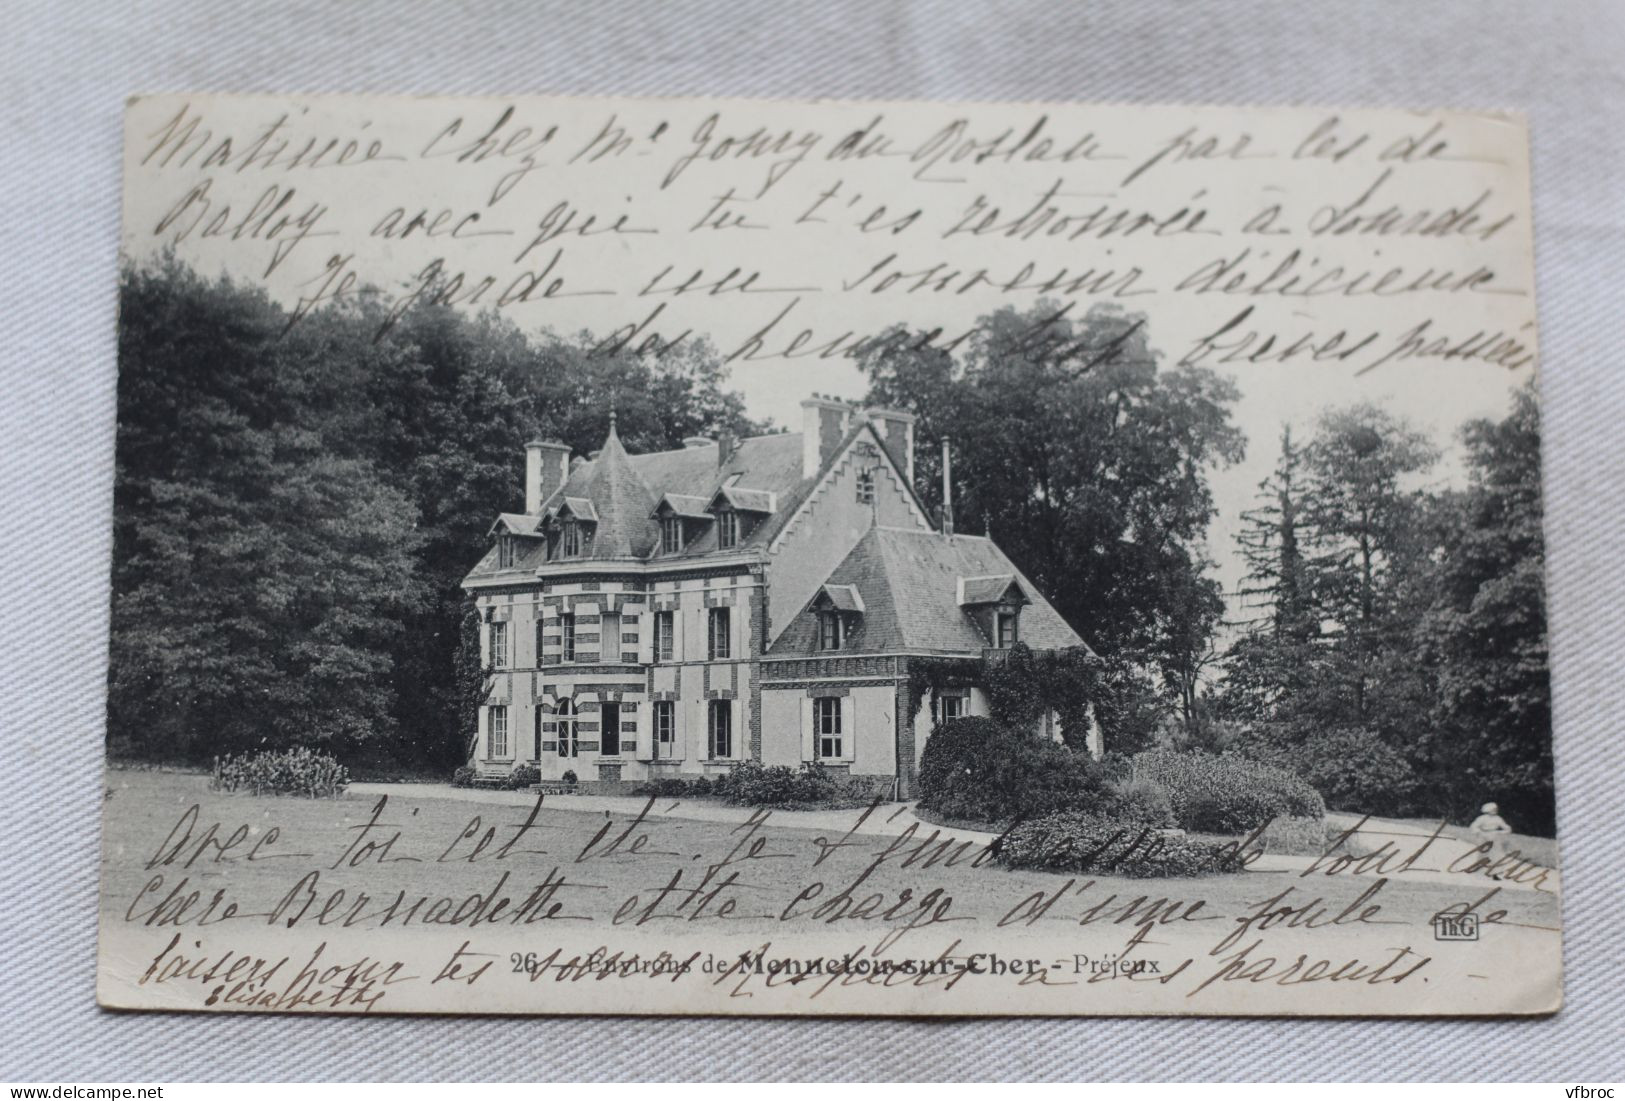 Matinée chez Me Joury du Roslan par les de
Balloy avec qui tu t'es retrouvée à Lourdes
Je garde un souvenir délicieux
des heures trop brèves passées
Avec toi cet été. Je t'embrasse de tout cœur
chère Bernadette et te charge d'une foule de
baisers pour tes sœurs Respects à tes parents. -
Elisabeth
26 - Environs de Mennetou-sur-Cher - Préjeux
Th.G
vfbroc